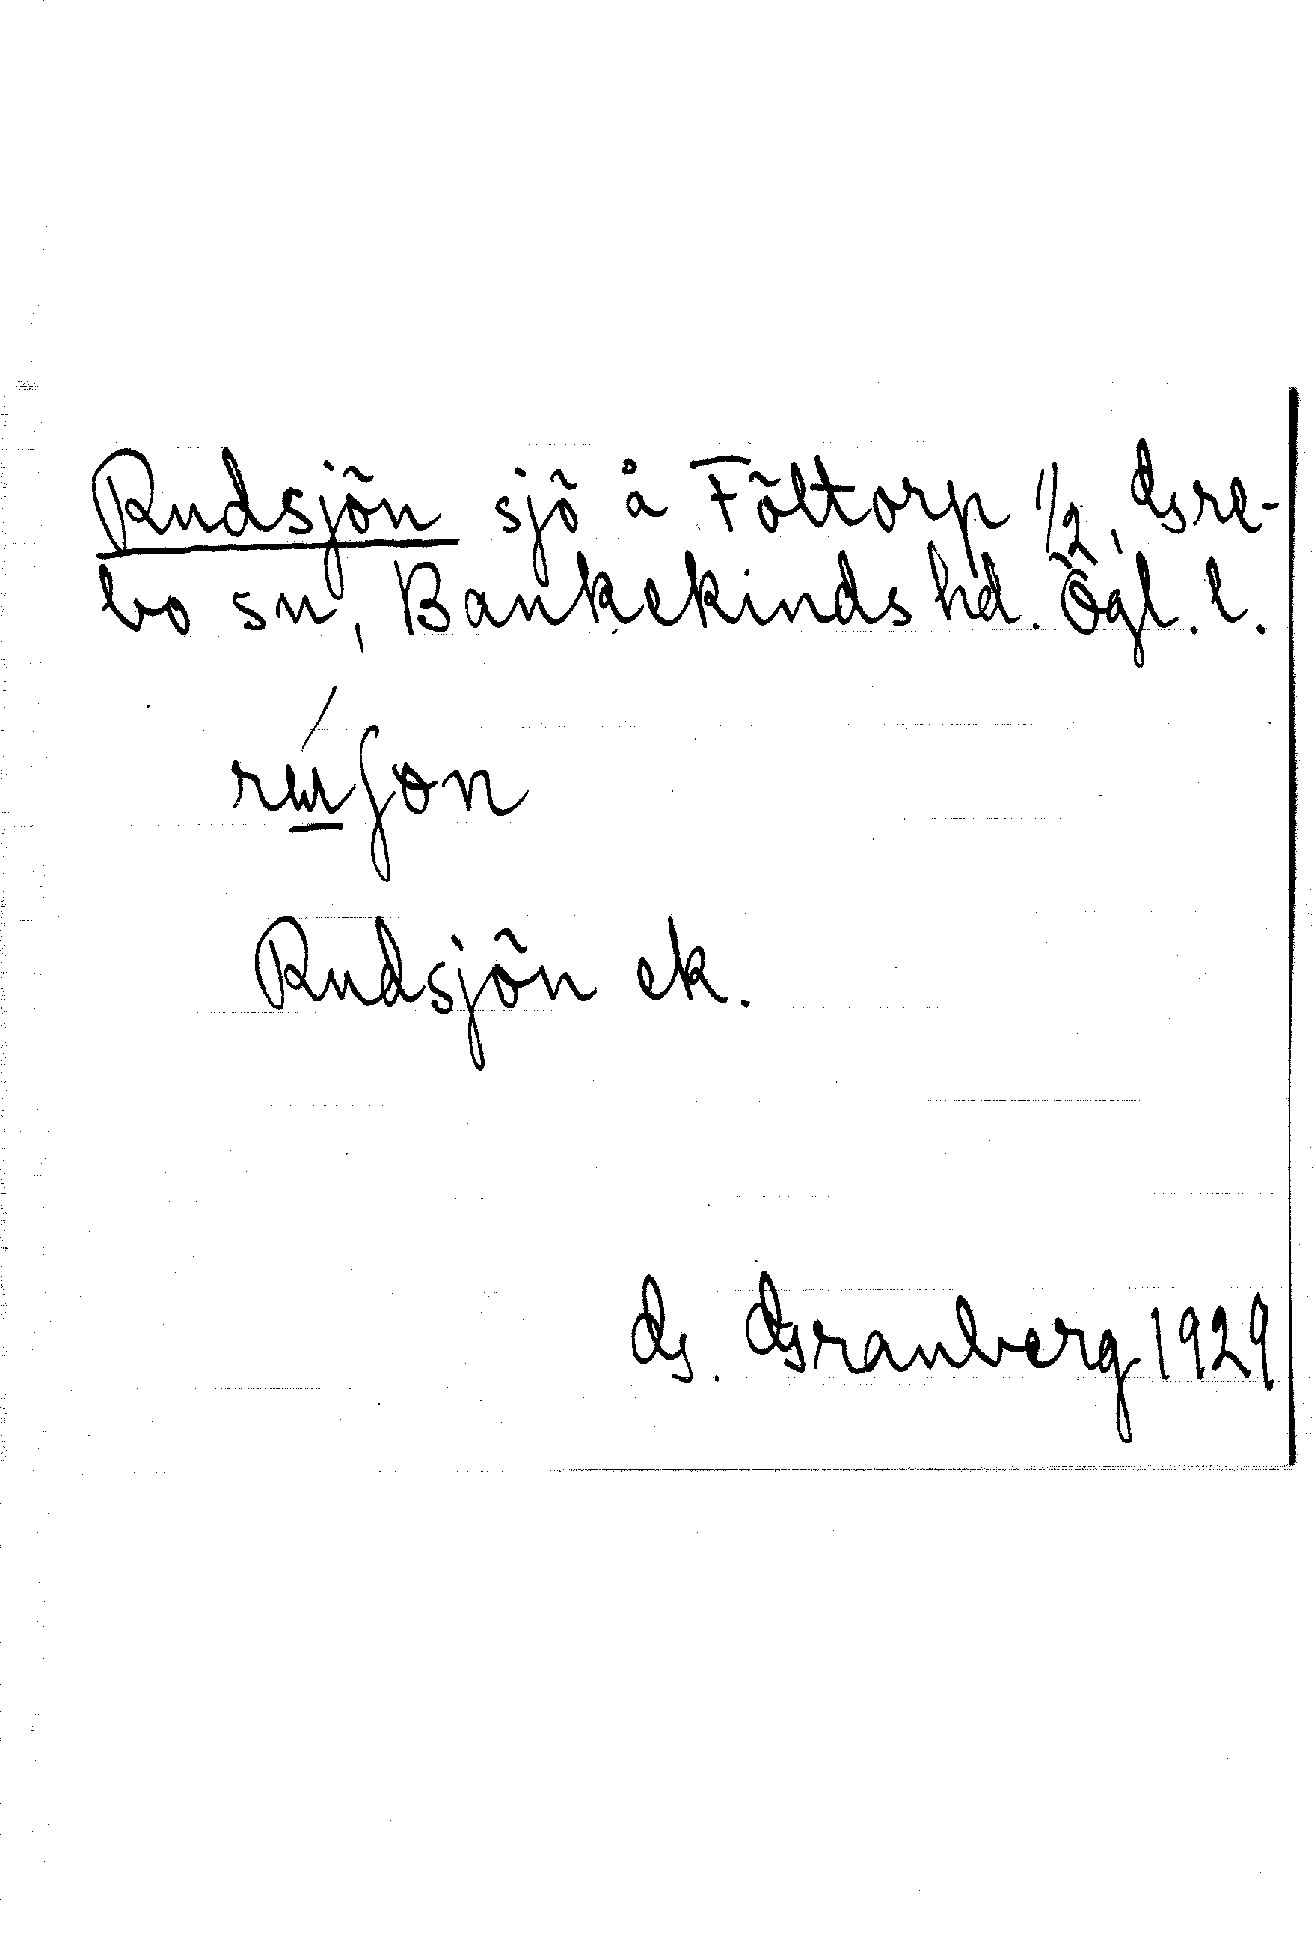 Rudsjön sjö å Föltorp 1/2, Gre-
bo sn, Bankekinds hd. Ögl. l.
Rudsjön ek.
G. Granberg 1929